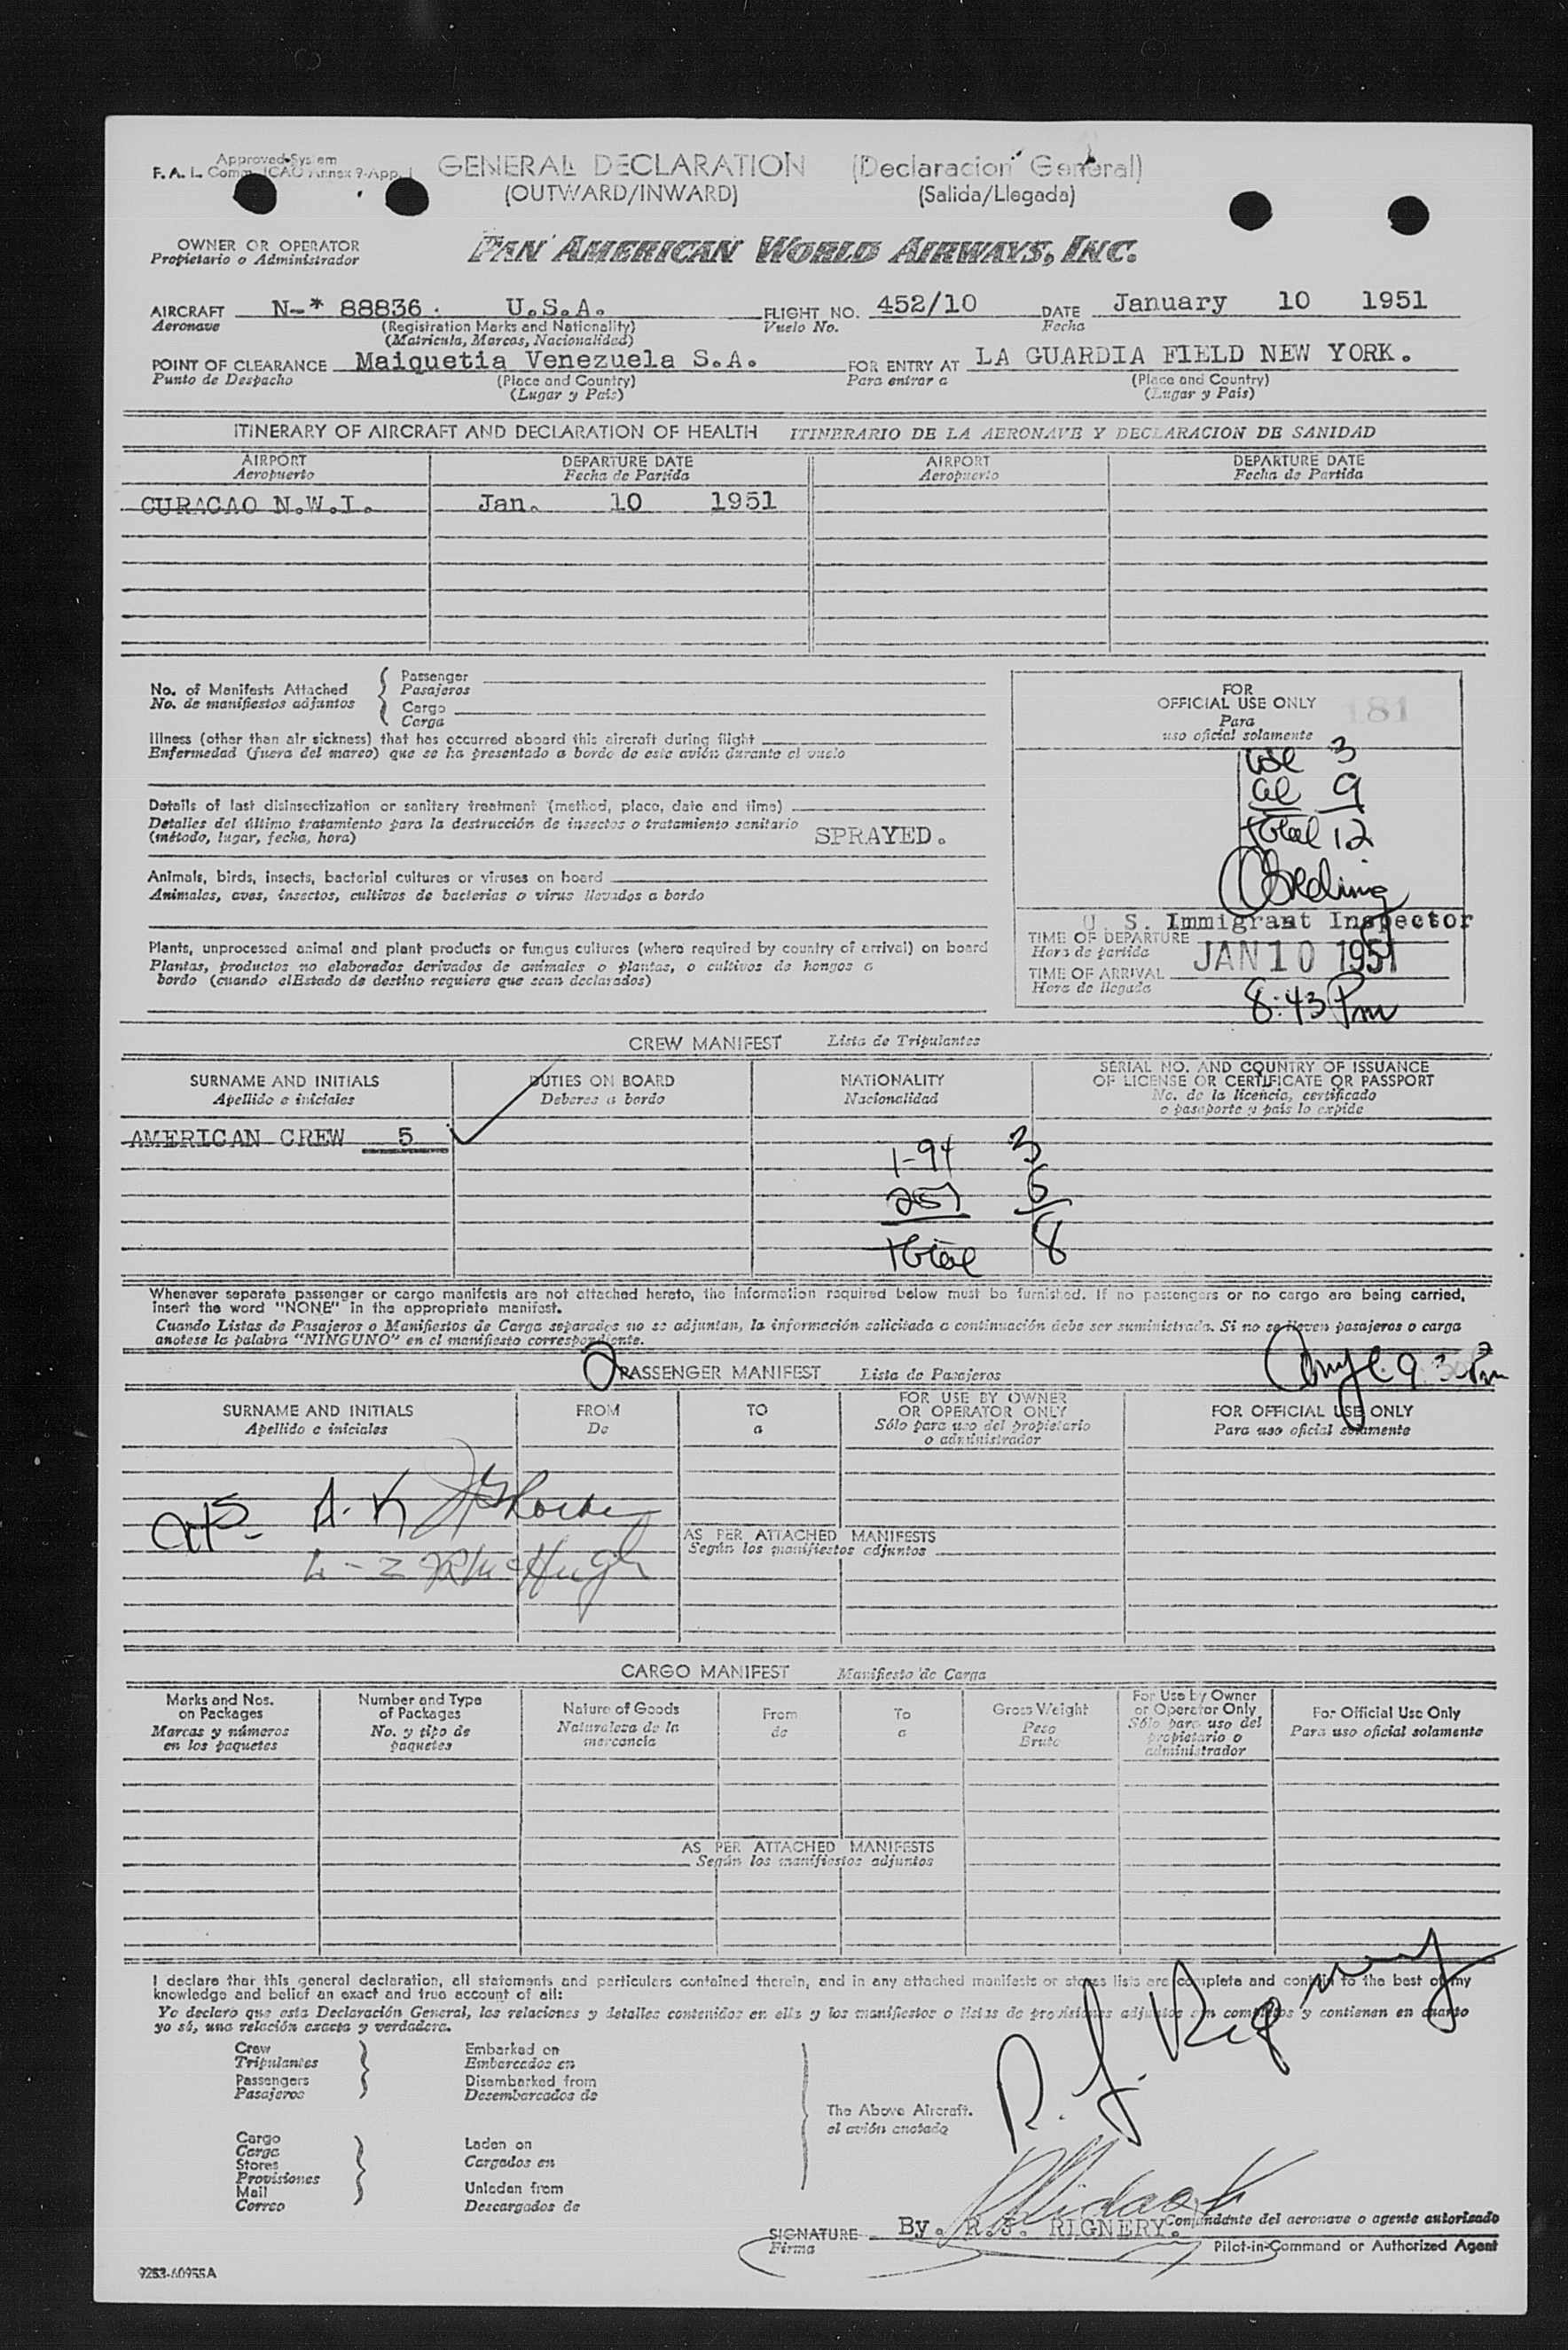 Approved System
F. A. L. Comm. ICAO Annex 9-App. 1
GENERAL DECLARATION (Declaracion General)
(OUTWARD/INWARD) (Salida/Llegada)
OWNER OR OPERATOR
Propietario o Administrador
PAN AMERICAN WORLD AIRWAYS, INC.
AIRCRAFT N-* 88836. U.S.A. FLIGHT NO. 452/10 DATE January 10 1951
Aeronave (Registration Marks and Nationality) Vuelo No. Fecha
(Matricula, Marcas, Nacionalidad)
POINT OF CLEARANCE Maiquetia Venezuela S.A. FOR ENTRY AT LA GUARDIA FIELD NEW YORK.
Punto de Despacho (Place and Country) Para entrar a (Place and Country)
(Lugar y Pais) (Lugar y Pais)
ITINERARY OF AIRCRAFT AND DECLARATION OF HEALTH ITINERARIO DE LA AERONAVE Y DECLARACION DE SANIDAD
AIRPORT DEPARTURE DATE AIRPORT DEPARTURE DATE
Aeropuerto Fecha de Partida Aeropuerto Fecha de Partida
CURACAO N.W.I. Jan. 10 1951
No. of Manifests Attached
No. de manifiestos adjuntos
Passenger
Pasajeros
Cargo
Carga
Illness (other than air sickness) that has occurred aboard this aircraft during flight
Enfermedad (fuera del mareo) que se ha presentado a bordo de este avión durante el vuelo
Details of last disinsectization or sanitary treatment (method, place, date and time)
Detalles del último tratamiento para la destrucción de insectos o tratamiento sanitario
(método, lugar, fecha, hora) SPRAYED.
Animals, birds, insects, bacterial cultures or viruses on board
Animales, aves, insectos, cultivos de bacterias o virus llevados a bordo
Plants, unprocessed animal and plant products or fungus cultures (where required by country of arrival) on board
Plantas, productos no elaborados derivados de animales o plantas, o cultivos de hongos a
bordo (cuando el Estado de destino requiere que sean declarados)
FOR
OFFICIAL USE ONLY 181
Para
uso oficial solamente
3
al 9
total 12
U. S. Immigrant Inspector
TIME OF DEPARTURE
Hora de partida JAN 10 1951
TIME OF ARRIVAL
Hora de llegada 8:43 Pm
CREW MANIFEST Lista de Tripulantes
SURNAME AND INITIALS DUTIES ON BOARD NATIONALITY SERIAL NO. AND COUNTRY OF ISSUANCE
OF LICENSE OR CERTIFICATE OR PASSPORT
Apellido e iniciales Deberes a bordo Nacionalidad No. de la licencia, certificado
o pasaporte y pais lo expide
AMERICAN CREW 5
1-94 3
257 5
total 8
Whenever separate passenger or cargo manifests are not attached hereto, the information required below must be furnished. If no passengers or no cargo are being carried,
insert the word "NONE" in the appropriate manifest.
Cuando Listas de Pasajeros o Manifiestos de Carga separados no se adjuntan, la información solicitada a continuación debe ser suministrada. Si no se lleven pasajeros o carga
anotese la palabra "NINGUNO" en el manifiesto correspondiente.
PASSENGER MANIFEST Lista de Pasajeros
SURNAME AND INITIALS FROM TO FOR USE BY OWNER
OR OPERATOR ONLY FOR OFFICIAL USE ONLY
Apellido e iniciales De a Sólo para uso del propietario
o administrador Para uso oficial solamente
A. K
AS PER ATTACHED MANIFESTS
Según los manifiestos adjuntos
McHugh
CARGO MANIFEST Manifiesto de Carga
Marks and Nos.
on Packages
Marcas y números
en los paquetes
Number and Type
of Packages
No. y tipo de
paquetes
Nature of Goods
Naturaleza de la
mercancia
From
de
To
a
Gross Weight
Peso
Bruto
For Use by Owner
or Operator Only
Sólo para uso del
propietario o
administrador
For Official Use Only
Para uso oficial solamente
AS PER ATTACHED MANIFESTS
Según los manifiestos adjuntos
I declare that this general declaration, all statements and particulars contained therein, and in any attached manifests or stores lists are complete and contain to the best of my
knowledge and belief an exact and true account of all:
Yo declaro que esta Declaración General, las relaciones y detalles contenidos en ella y los manifiestos o listas de provisiones adjuntos son completos y contienen en cuanto
yo sé, una relación exacta y verdadera.
Crew
Tripulantes
Passengers
Pasajeros
Embarked on
Embarcados en
Disembarked from
Desembarcados de
Cargo
Carga
Stores
Provisiones
Mail
Correo
Laden on
Cargados en
Unladen from
Descargados de
The Above Aircraft.
el avión anotado
R. J. Rignery
SIGNATURE By. R.J. RIGNERY.
Firma
Comandante del aeronave o agente autorizado
Pilot-in-Command or Authorized Agent
9253-60955A